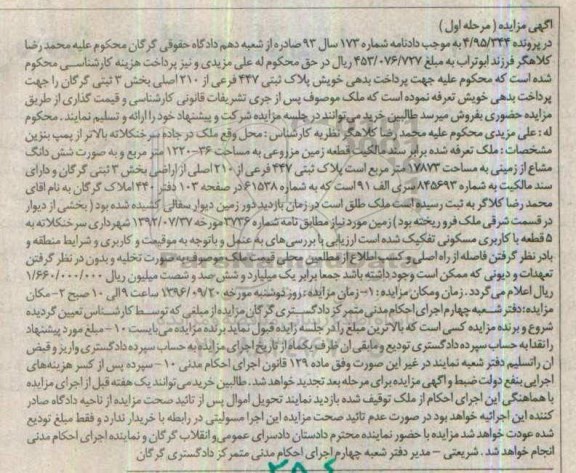 آگهی مزایده ( مرحله اول )
در پرونده ۴/۹۵/۳۴۴ به موجب دادنامه شماره ۱۷۳ سال ۹۳ صادره از شعبه دهم دادگاه حقوقی گرگان محکوم علیه محمد رضا
کلاهگر فرزند ابوتراب به مبلغ ۴۵۳/۰۷۶/۷۷۷ ریال در حق محکوم له علی مزیدی و نیز پرداخت هزینه کارشناسی محکوم
شده است که محکوم علیه جهت پرداخت بدهی خویش پلاک ثبتی ۴۴۷ فرعی از ۲۱۰ اصلی بخش ۳ ثبتی گرگان را جهت
پرداخت بدهی خویش تعرفه نموده است که ملک موصوف پس از جری تشریفات قانونی کارشناسی و قیمت گذاری از طریق
مزایده حضوری بفروش میرسد طالبین خرید می توانند در جلسه مزایده شرکت و پیشنهاد خود را ارائه و تسلیم نمایند . محکوم
له : علی مزیدی محکوم علیه محمد رضا کلاهگر نظریه کارشناس : محل وقوع ملک در جاده سرخنکلاته بالاتر از پمپ بنزین
مشخصات : ملک تعرفه شده برابر سند مالکیت قطعه زمین مزروعی به مساحت ۱۲۲۰-۳۶ متر مربع و به صورت شش دانگ
مشاع از زمینی به مساحت ۱۷۸۷۳ متر مربع است پلاک ثبتی ۴۴۷ فرعی از ۲۱۰ اصلی از اراضی بخش ۳ ثبتی گرگان و دارای
سند مالکیت به شماره ۸۴۵۶۹۳ سری الف ۹۱ است که به شماره ۶۱۵۳۸ در صفحه ۱۰۳ دفتر ۴۴۰ املاک گرگان به نام اقای
محمد رضا کلاگر به ثبت رسیده است ملک طلق است در زمان بازدید دور زمین دیوار سفالی کشیده شده بود ( بخشی از دیوار
در قسمت شرقی ملک فرو ریخته بود ) زمین مورد نیاز مطابق نامه شماره ۳۷۳۶ مورخه ۱۳۹۲/۰۷/۳۷ شهرداری سرخنکلاته به
۵ قطعه با کاربری مسکونی تفکیک شده است ارزیابی با بررسی های به عمل و باتوجه به موقعیت و کاربری و شرایط منطقه و
بادر نظر گرفتن فاصله از راه اصلی و کسب اطلاع از مطلعین محلی قیمت ملک موصوف به صورت تخلیه و بدون در نظر گرفتن
تعهدات و دیونی که ممکن است وجود داشته باشد جمعا برابر یک میلیارد و شش صد و شصت میلیون ریال ۱/۶۶۰/۰۰۰/۰۰۰
ریال اعلام می گردد . زمان ومکان مزایده : ۱- زمان مزایده : روز دوشنبه مورخه ۱۳۹۶/۰۹/۲۰ ساعت ۹ الی ۱۰ صبح ۲- مکان
مزایده : دفتر شعبه چهارم اجرای احکام مدنی متمرکز دادگستری گرگان مزایده از مبلغی که توسط کارشناس تعیین گردیده
شروع و برنده مزایده کسی است که بالاترین مبلغ را در جلسه مزایده قبول نماید برنده مزایده می بایست ۱۰- مبلغ مورد پیشنهاد
را نقدا به حساب سپرده دادگستری تودیع و مابقی ان ظرف یکماه از تاریخ اجرای مزایده به حساب سپرده دادگستری واریز و قبض
ان راتسلیم دفتر شعبه نمایند در غیر این صورت وفق ماده ۱۲۹ قانون اجرای احکام مدنی ۱۰- سپرده پس از کسر هزینه های
اجرایی بنفع دولت ضبط و اگهی مزایده برای مرحله بعد تجدید خواهد شد . طالبین خرید می توانند یک هفته قبل از اجرای مزایده
با هماهنگی این اجرای احکام از ملک توقیف شده بازدید نمایند تحویل اموال پس از تائید صحت مزایده از ناحیه دادگاه صادر
کننده این اجرائیه خواهد بود در صورت عدم تائید صحت مزایده این اجرا مسولیتی در رابطه با خریدار ندارد و فقط مبلغ تودیع
شده عودت خواهد شد مزایده با حضور نماینده محترم دادستان دادسرای عمومی و انقلاب گرگان و نماینده اجرای احکام مدنی
انجام خواهد شد . شریعتی – مدیر دفتر شعبه چهارم اجرای احکام مدنی متمرکز دادگستری گرگان